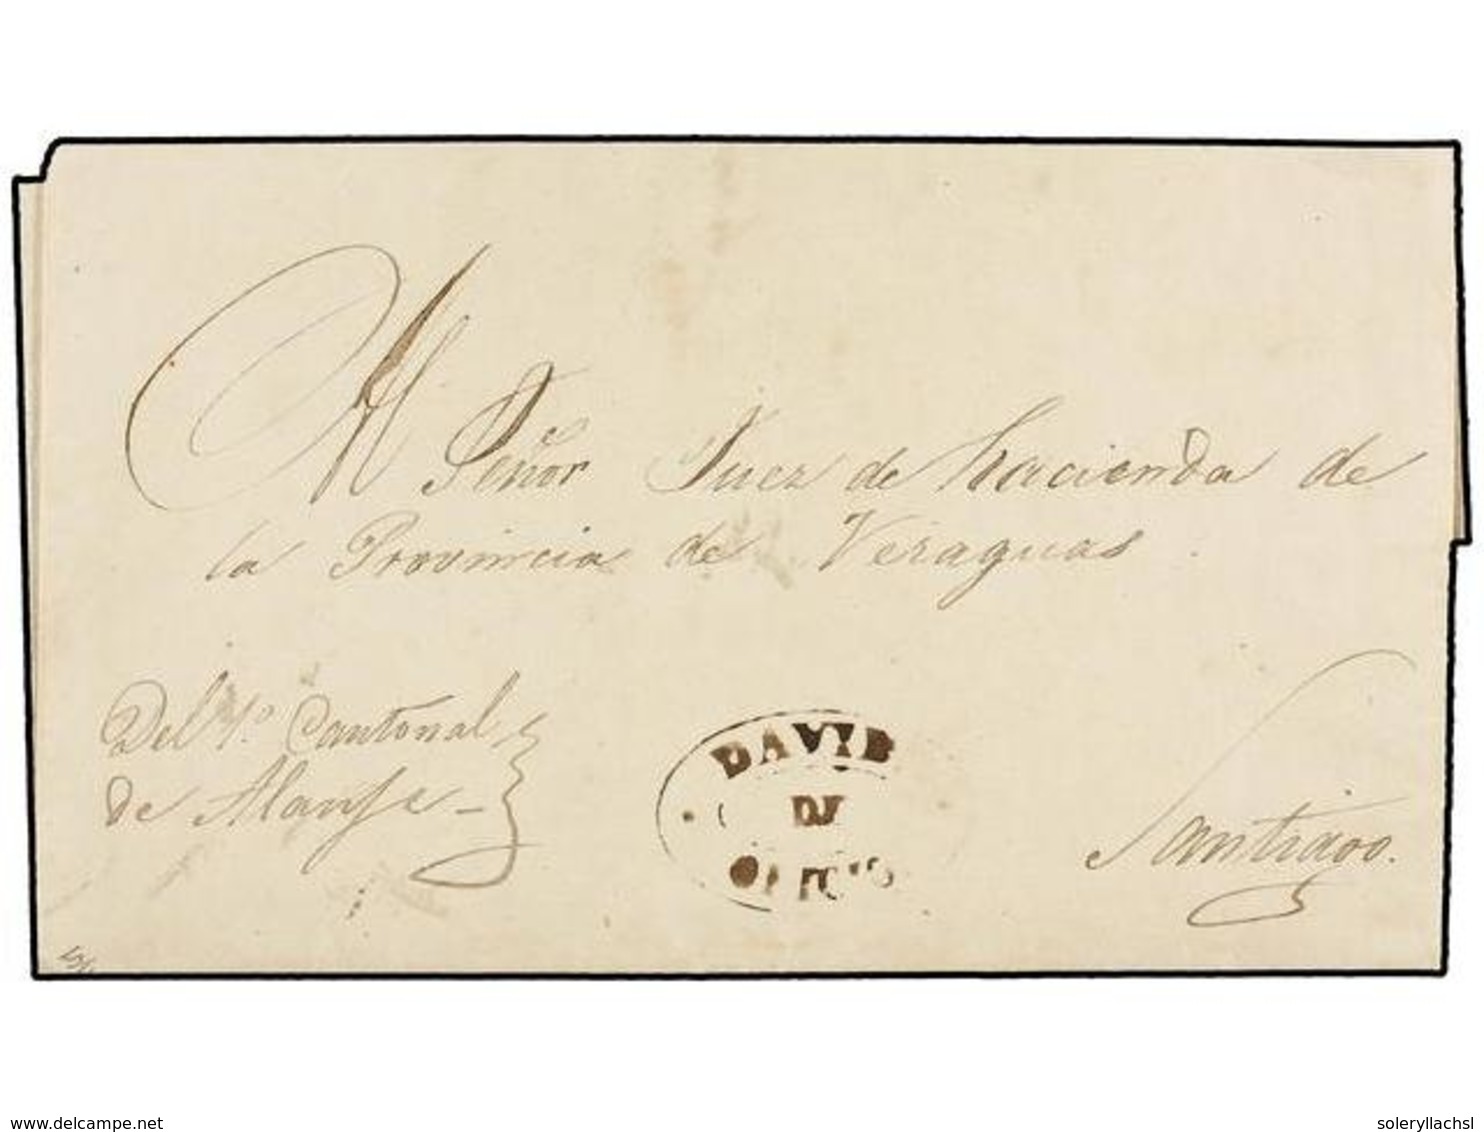 Al Señor Juez de hacienda de
la Provincia de Veraguas.
Del 1º Cantonal
de Alanje
DAVID
DE
OFICIO
Santiago.
delcampe.net
soleryllachsl